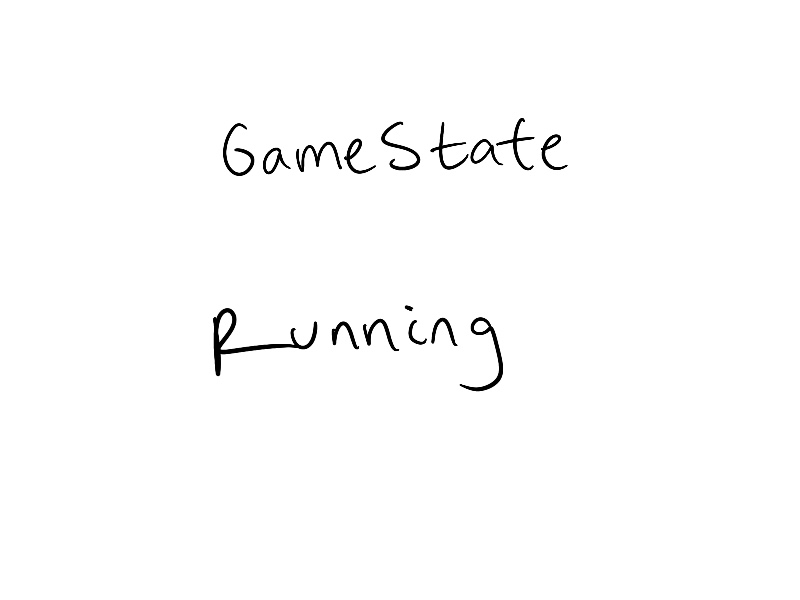 GameState
Running